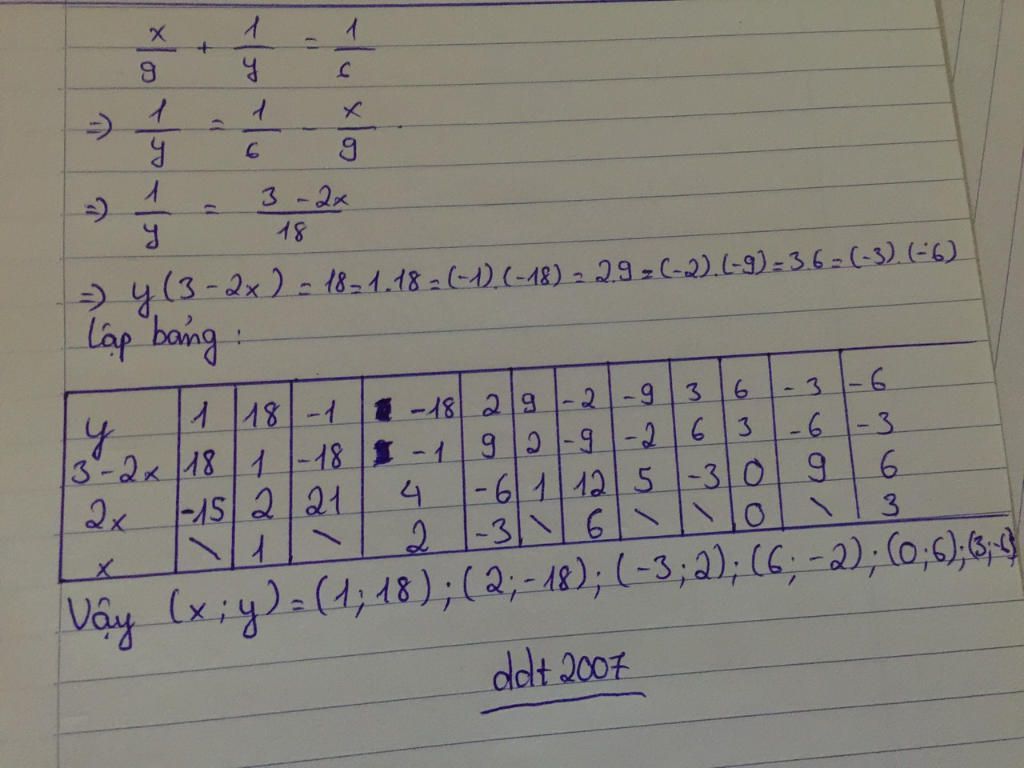 x/9 + 1/y = 1/6
=> 1/y = 1/6 - x/9
=> 1/y = (3 - 2x)/18
=> y(3-2x) = 18 = 1.18 = (-1).(-18) = 2.9 = (-2).(-9) = 3.6 = (-3).(-6)
Lập bảng :
y 1 18 -1 -18 2 9 -2 -9 3 6 -3 -6
3-2x 18 1 -18 -1 9 2 -9 -2 6 3 -6 -3
2x -15 2 21 4 -6 1 12 5 -3 0 9 6
x \ 1 \ 2 -3 \ 6 \ \ 0 \ 3
Vậy (x;y) = (1;18);(2;-18);(-3;2);(6;-2);(0;6);(3;-6)
ddt 2007